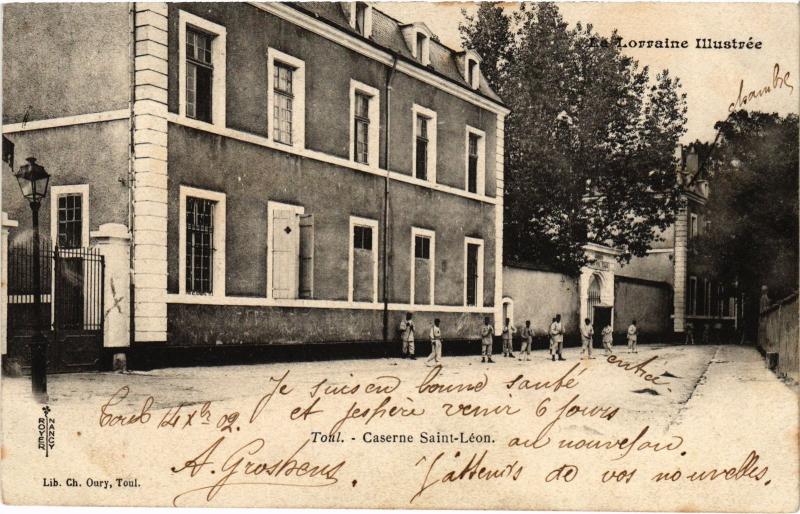 La Lorraine Illustrée
chambre
entrée
Je suis en bonne santé
Toul 14 Xbre 02.
et j'espère venir 6 jours
Toul. - Caserne Saint-Léon.
au nouvel an.
A.
J'attends de vos nouvelles.
ROYER
NANCY
Lib. Ch. Oury, Toul.